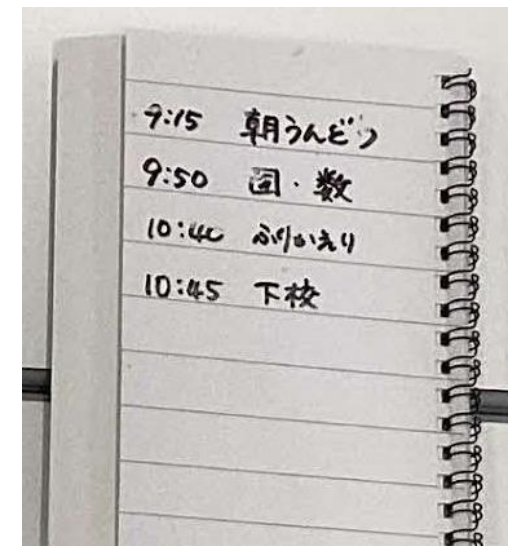 9:15 朝うんどう
9:50 国・数
10:40 ふりかえり
10:45 下校